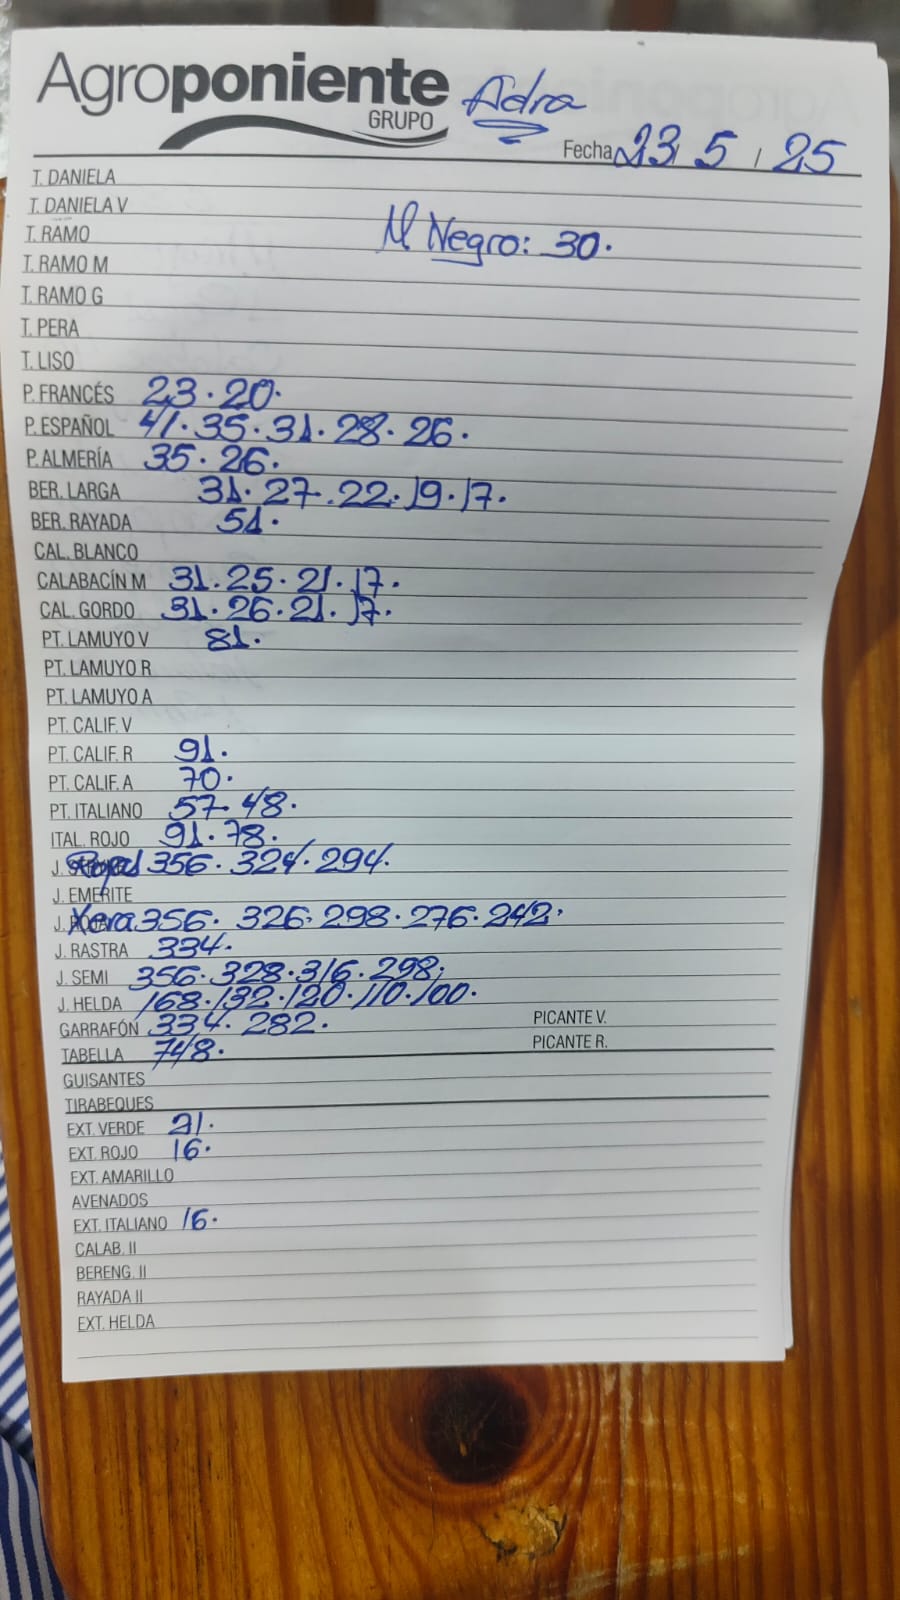 Agroponiente
GRUPO
Adra
Fecha 23 / 5 / 25
T. DANIELA
T. DANIELA V
T. RAMO
M Negro: 30.
T. RAMO M
T. RAMO G
T. PERA
T. LISO
P. FRANCÉS 23 · 20.
P. ESPAÑOL 41 · 35 · 31 · 28 · 26.
P. ALMERÍA 35 · 26.
BER. LARGA 31 · 27 · 22 · 19 · 17.
BER. RAYADA 51.
CAL. BLANCO
CALABACÍN M 31 · 25 · 21 · 17.
CAL. GORDO 31 · 26 · 21 · 17.
PT. LAMUYO V 81.
PT. LAMUYO R
PT. LAMUYO A
PT. CALIF. V
PT. CALIF. R 91.
PT. CALIF. A 70.
PT. ITALIANO 57 · 48.
ITAL. ROJO 91 · 78.
J. Rojas 356 · 324 · 294.
J. EMERITE
J. Xera 356 · 326 · 298 · 276 · 242.
J. RASTRA 334.
J. SEMI 356 · 328 · 316 · 298.
J. HELDA 168 · 132 · 120 · 110 · 100.
GARRAFÓN 334 · 282. PICANTE V.
TABELLA 748. PICANTE R.
GUISANTES
TIRABEQUES
EXT. VERDE 21.
EXT. ROJO 16.
EXT. AMARILLO
AVENADOS
EXT. ITALIANO 16.
CALAB. II
BERENG. II
RAYADA II
EXT. HELDA